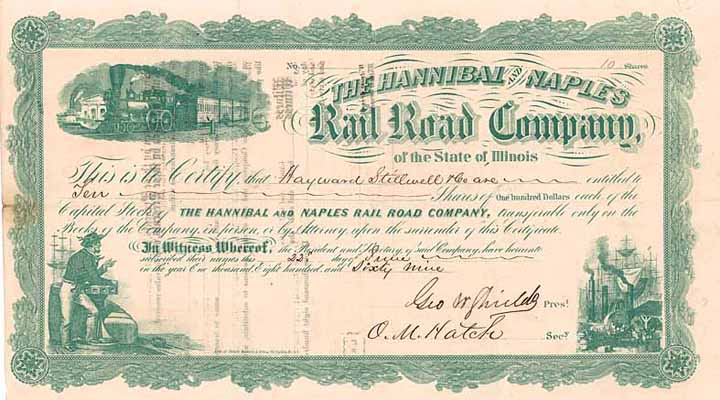 No. 10 Shares
THE HANNIBAL AND NAPLES
Rail Road Company,
of the State of Illinois
This is to Certify, that Hayward Stillwell & Co are entitled to
Ten Shares of One hundred Dollars each of the
Capital Stock THE HANNIBAL AND NAPLES RAIL ROAD COMPANY, transferable only on the
Books of the Company, in person, or by Attorney, upon the surrender of this Certificate.
In Witness Whereof, the President and Secretary, of said Company, have hereunto
subscribed their names this 22d day of June
in the year One thousand, Eight hundred, and Sixty nine
Geo W Shields Prest.
O. M. Hatch Secy.